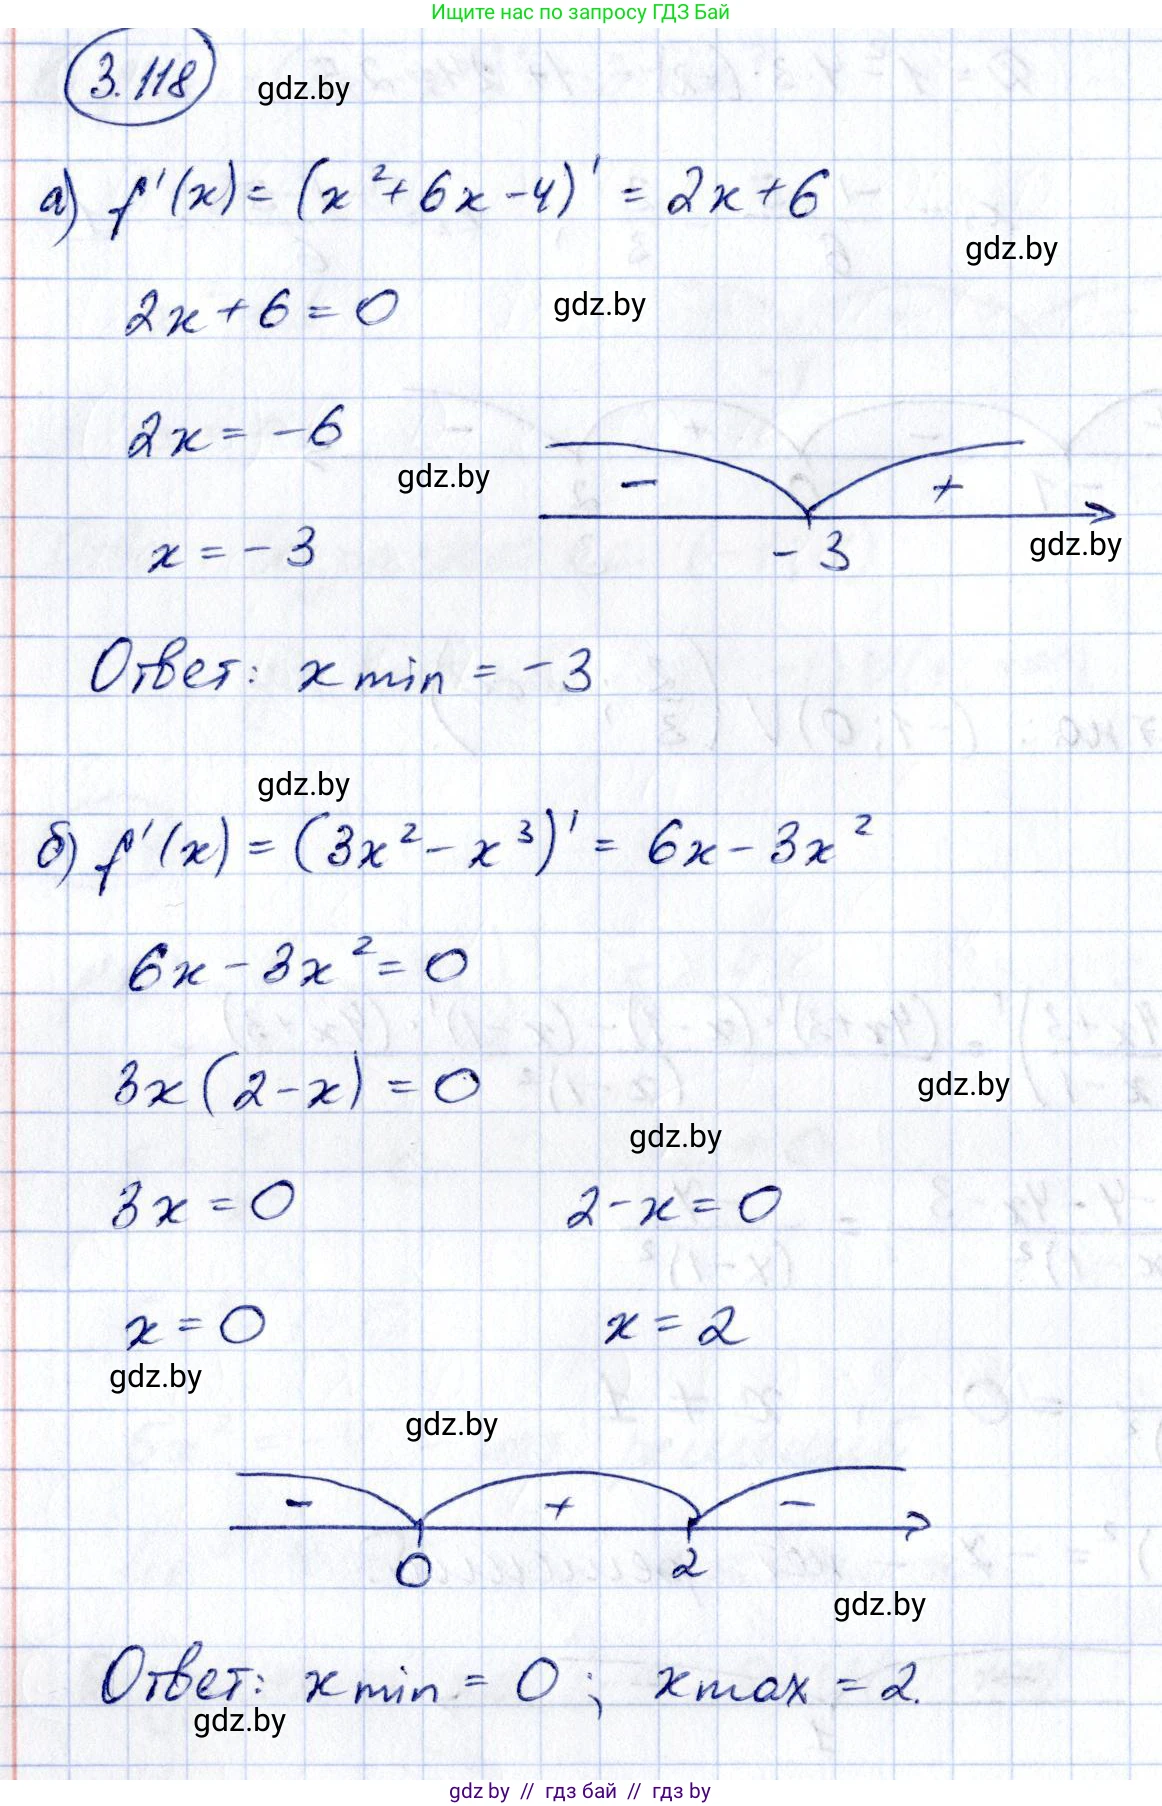 Ищите нас по запросу ГДЗ Бай
3.118
gdz.by
а) f'(x) = (x² + 6x - 4)' = 2x + 6
gdz.by
2x + 6 = 0
gdz.by
2x = -6
gdz.by
- +
x = -3
-3
gdz.by
Ответ: x min = -3
gdz.by
б) f'(x) = (3x² - x³)' = 6x - 3x²
6x - 3x² = 0
3x(2 - x) = 0
gdz.by
gdz.by
3x = 0 2 - x = 0
x = 0 x = 2
gdz.by
gdz.by
- + -
0 2
gdz.by
Ответ: x min = 0; x max = 2.
gdz.by
gdz by // гдз бай // гдз by